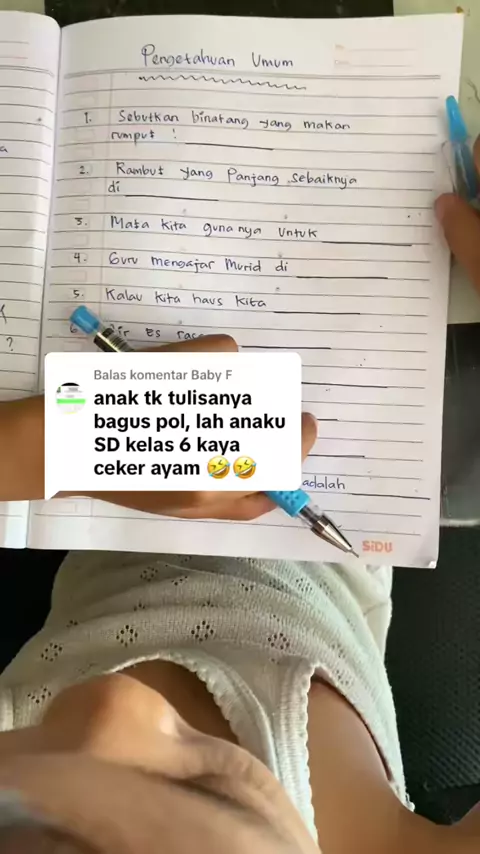 Pengetahuan Umum
1. Sebutkan binatang yang makan
rumput !
2. Rambut yang Panjang sebaiknya
di
3. Mata kita gunanya untuk
4. Guru mengajar Murid di
5. Kalau kita haus kita
Es
?
Balas komentar Baby F
anak tk tulisanya
bagus pol, lah anaku
SD kelas 6 kaya
ceker ayam 🤣🤣
adalah
SiDU